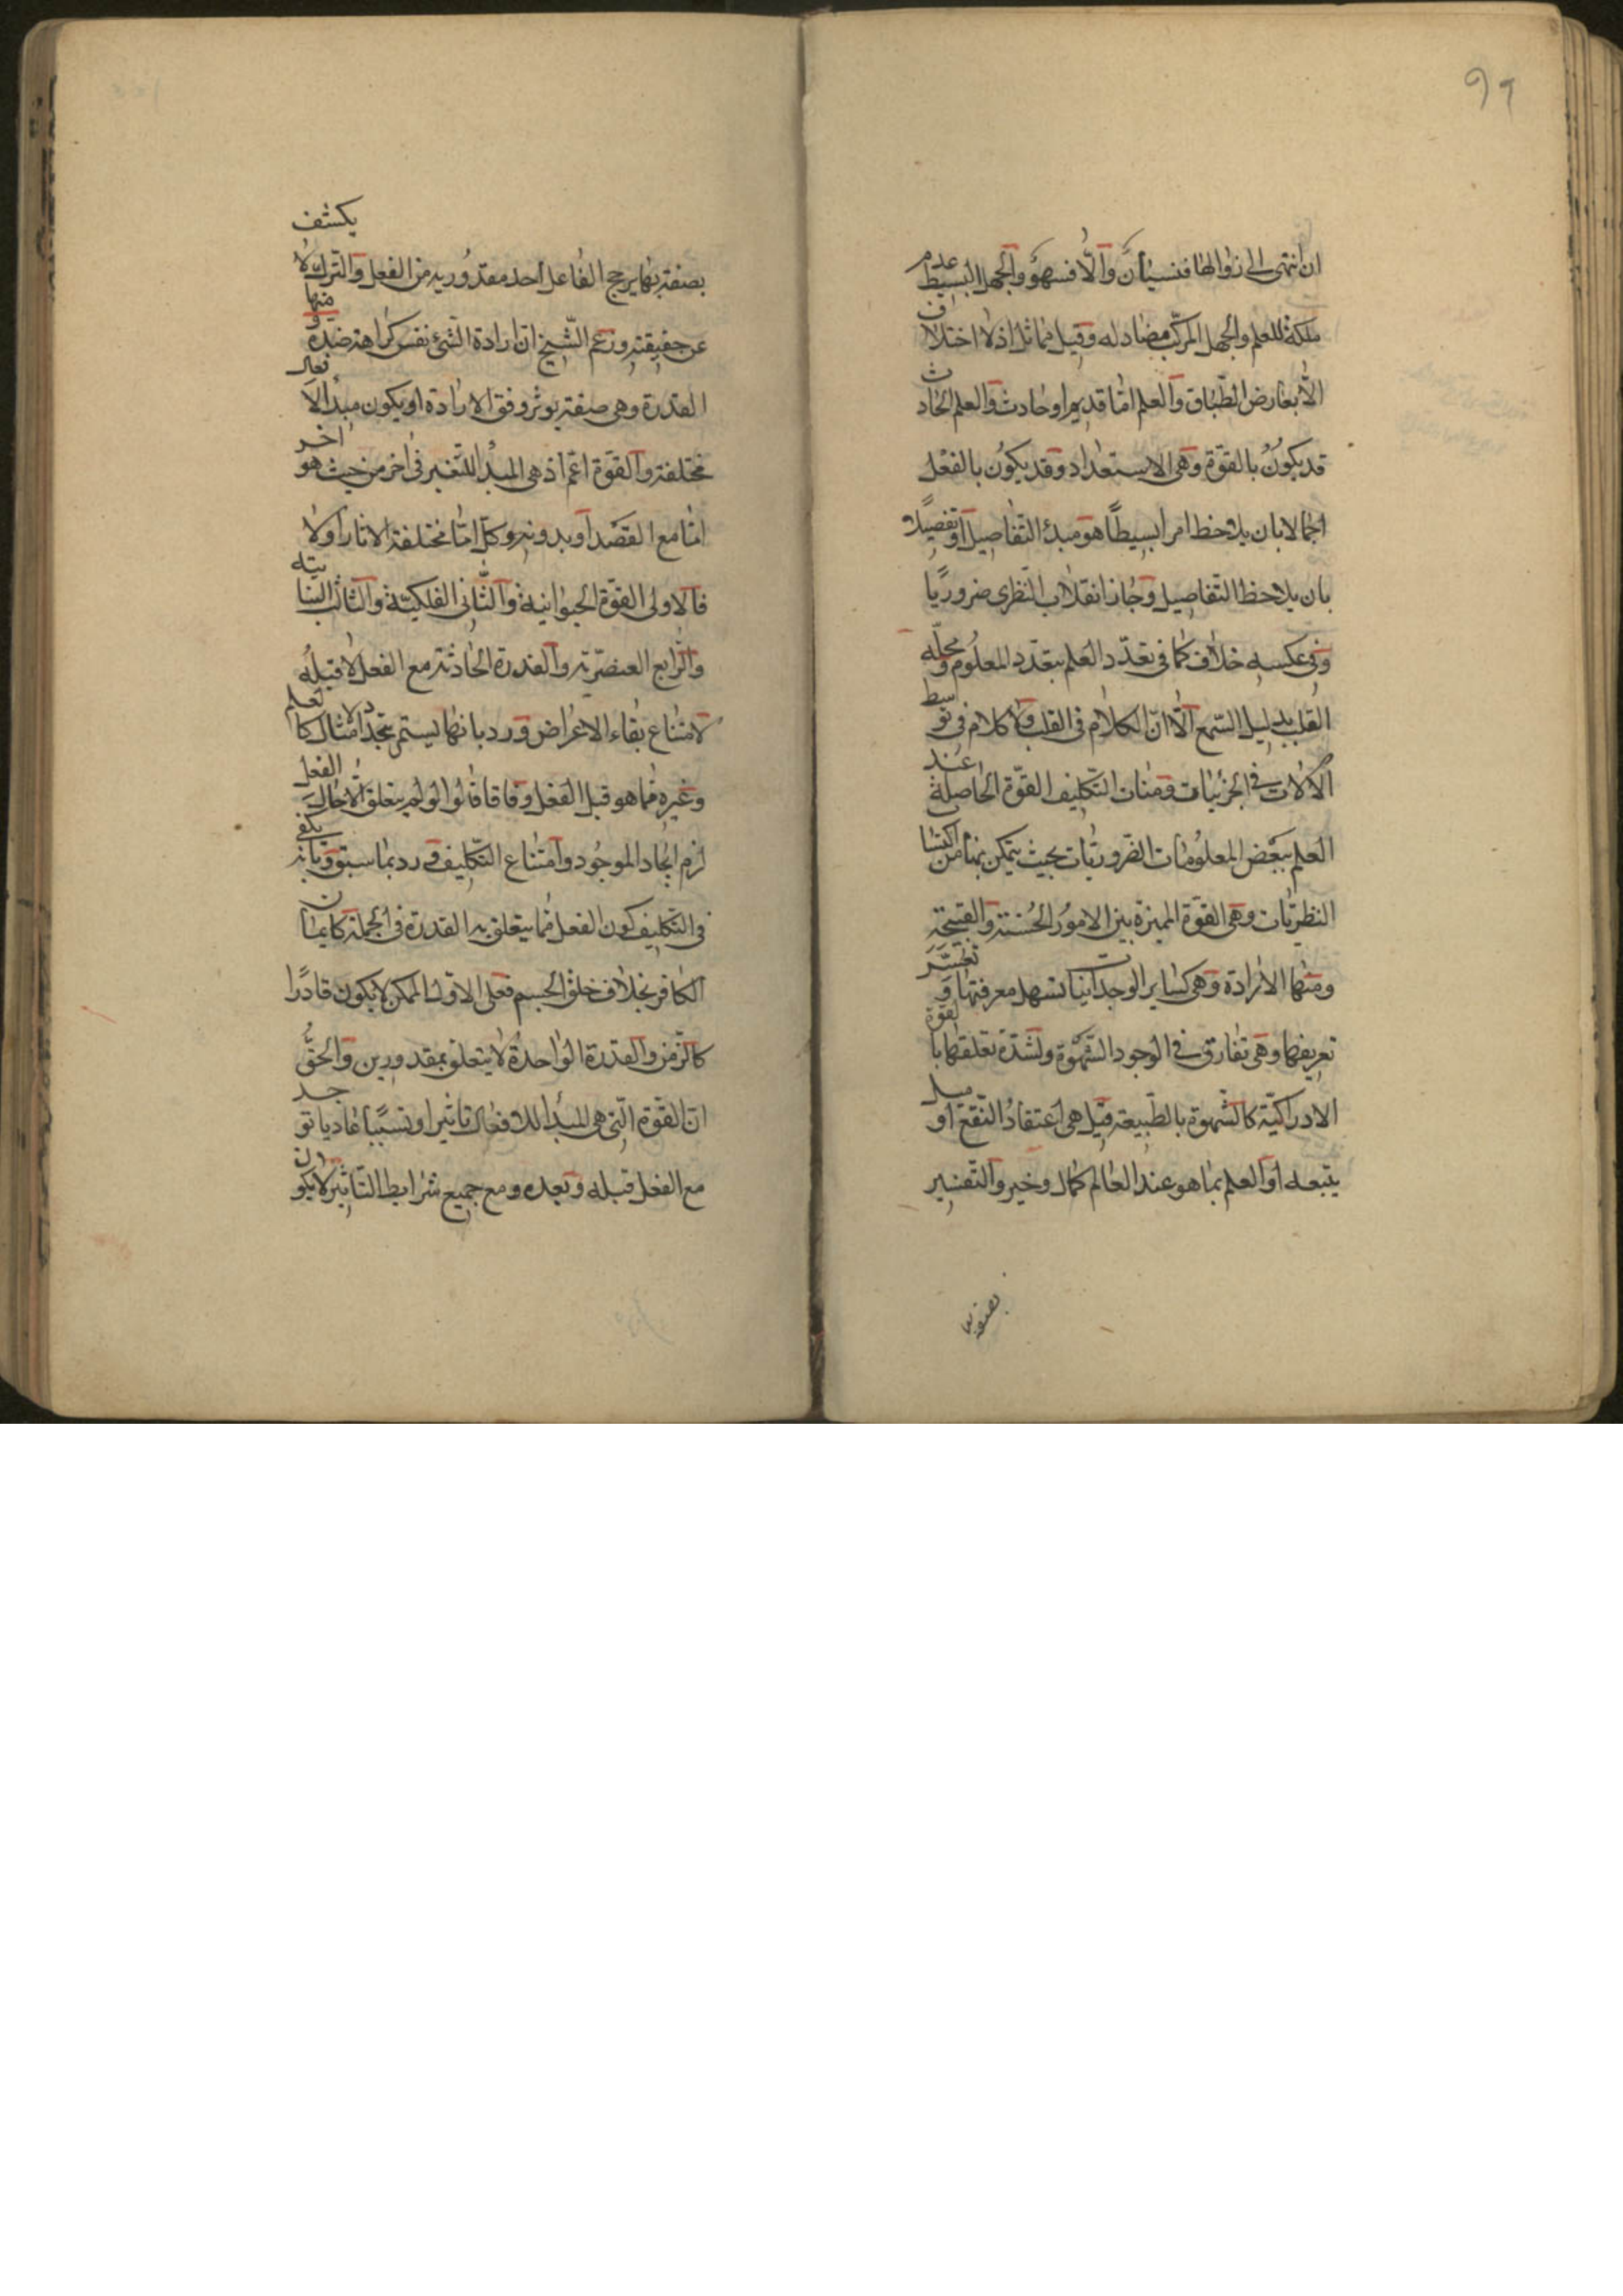 ٩٦
ان انتهى الى زوالها فنسيان والا فسهو والجهل البسيط عدم
ملكة للعلم والجهل المركب مضاد له وقيل مماثل اذ لا اختلاف
الا بعارض الطباق والعلم اما قديم او حادث والعلم الحادث
قد يكون بالقوة وهى الاستعداد وقد يكون بالفعل
اجمالا بان يلاحظ امرا بسيطا هو مبدء التفاصيل او تفصيلا
بان يلاحظ التفاصيل وجاز انقلاب النظرى ضروريا
وفى عكسه خلاف كما فى تعدد العلم بتعدد المعلوم ومحله
القلب بدليل السمع الا ان الكلام فى القلب ولا كلام فى توسط
الآلات فى الجزئيات ومناط التكليف القوة الحاصلة عند
العلم ببعض المعلومات الضروريات بحيث يتمكن بها من اكتساب
النظريات وهى القوة المميزة بين الامور الحسنة والقبيحة
ومنها الارادة وهى كساير الوجدانيات تسهل معرفتها وتعسر
تعريفها وهى تفارق فى الوجود الشهوة ولشدة تعلقها بالقوة
الادراكية كالشهوة بالطبيعة قيل هى اعتقاد النفع او ميل
يتبعه او العلم بما هو عند العالم كمال وخير والتفسير
بصفة بها
بصفة بها يرجح الفاعل احد مقدوريه من الفعل والترك لا يكشف
عن حقيقته وزعم الشيخ ان ارادة الشئ نفس كراهة ضده ومنها
القدرة وهى صفة يوثر وفق الارادة او يكون مبدأ لافعال
مختلفة والقوة اعم اذ هى المبدأ للتغير فى اخر من حيث هو اخر
اما مع القصد او بدونه وكل اما مختلفة الاثار او لا
فالاولى القوة الحيوانية والثانى الفلكية والثالث النباتية
والرابع العنصرية والقدرة الحادثة مع الفعل لا قبله
لامتناع بقاء الاعراض ورد بانها يستمر بتجدد الامثال كالعلم
وغيره مما هو قبل الفعل وفاقا قالوا لو لم يتعلق الا حال الفعل
لزم ايجاد الموجود وامتناع التكليف ورد بما سبق وبانه يكفى
فى التكليف كون الفعل مما يتعلق به القدرة فى الجملة كايمان
الكافر بخلاف خلق الجسم فعلى الاول الممكن لا يكون قادرا
كالزمن والقدرة الواحدة لا يتعلق بمقدورين والحق
ان القوة التى هى المبدأ للافعال تاثيرا او تسببا عاديا توجد
مع الفعل قبله وبعده ومع جميع شرايط التاثير لا يكون